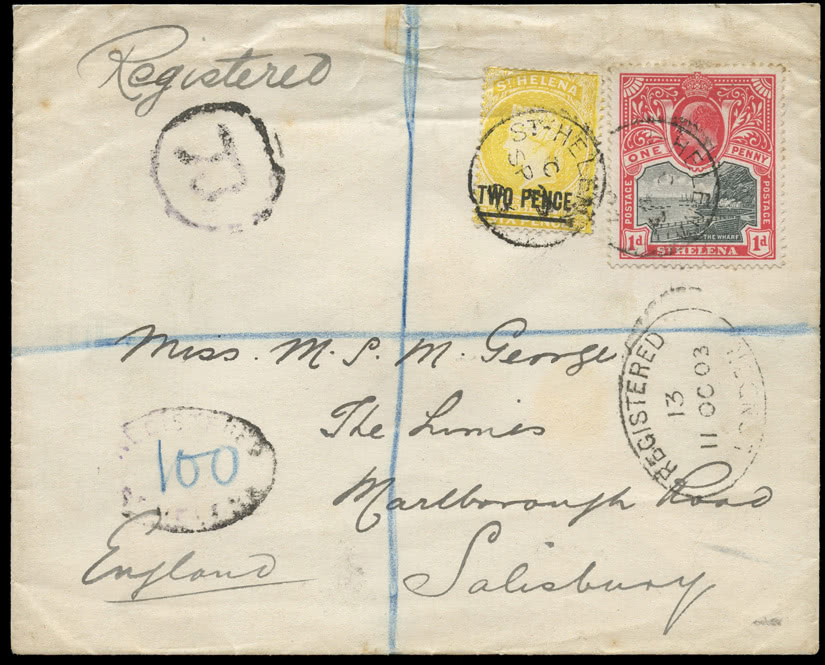 Registered
R
ST HELENA
TWO PENCE
SIX PENCE
ST HELENA
C
SP
ONE PENNY
POSTAGE
POSTAGE
THE WHARF
1d ST HELENA 1d
HELENA
REGISTERED
13
11 OC 03
LONDON
Miss. M. S. M. George
The Limes
Marlborough Road
Salisbury
England
REGISTERED
100
ST HELENA